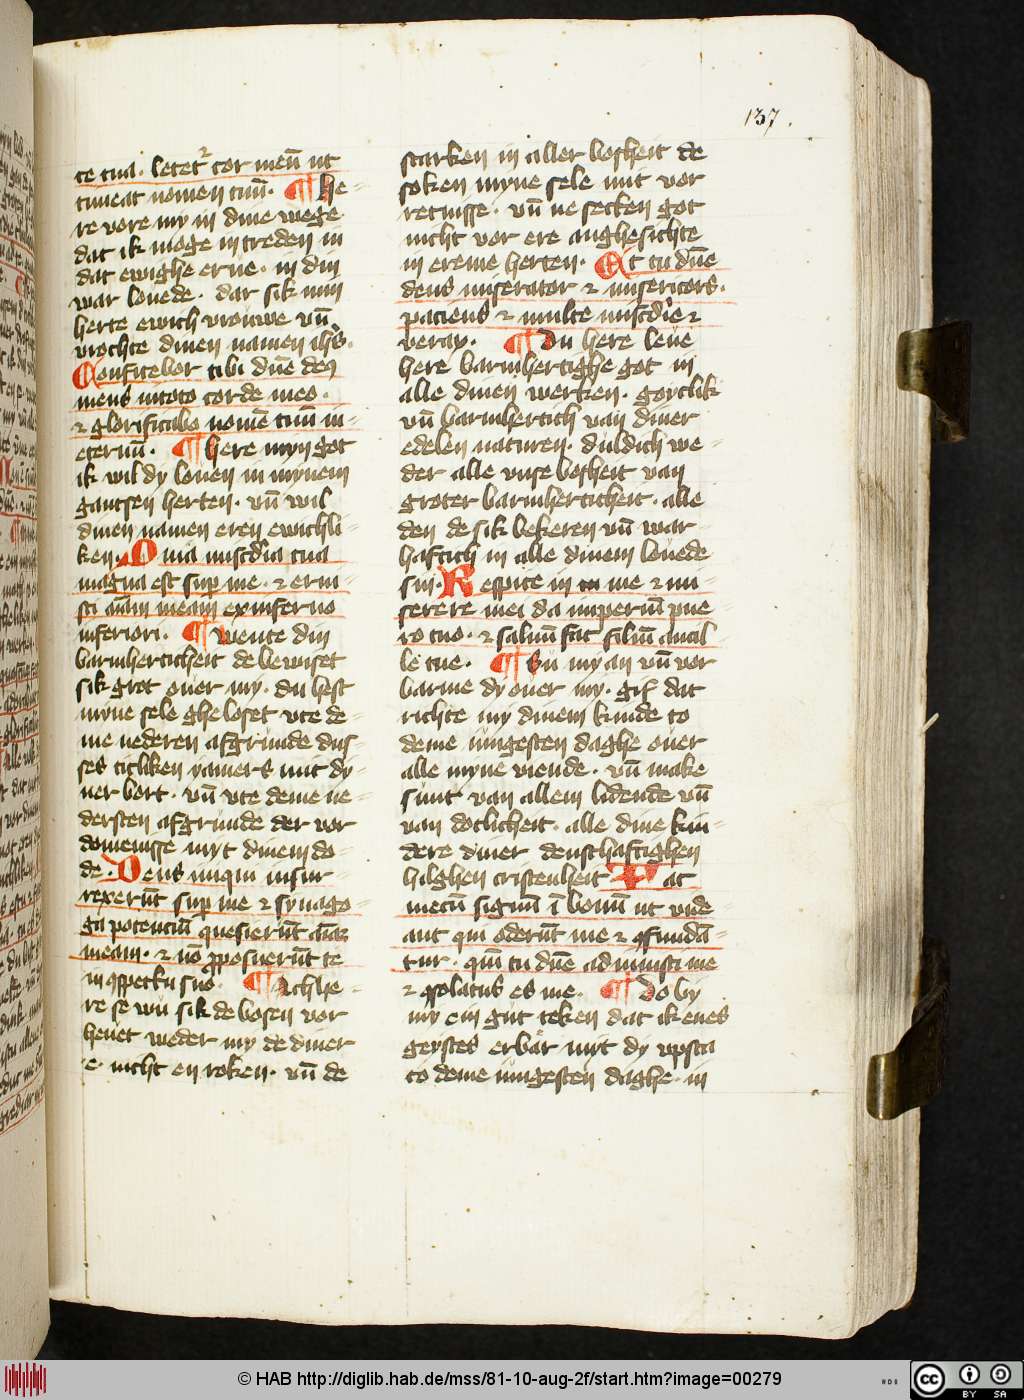 137.
te tua. letet᷑ cor meū ut
timeat nomen tuū. ¶ he=
re vore my in dine wege
dat ik moge intreden in
dat ewighe erue. in din
war louede. dar sik min
herte ewich vrouwe vn̄
vrochte dinen namen ihs̄.
Confitebor tibi dn̄e deꝯ
meus intoto corde meo.
⁊ glorificabo nomē tuū in=
eternū. ¶ here myn got
ik wil dy louen in mynem
gantsen herten. vn̄ wil
dinen namen eren ewichli=
ken. Quia mi̅scdia tua
magna est sup me. ⁊ erui=
sti aīam meam exinferno
inferiori. ¶ wente din
barmherticheit de bewiset
sik grot ouer my. du hest
myne sele ghe loset vte de=
me nederen afgrunde dus=
ses titliken yamers mit dy=
ner bort. vn̄ vte deme ne=
dersten afgrunde der vor
domenisse myt dinem do=
de. Deus iniqui insur=
rexerūt sup me ⁊ synago=
ga potenciū quesierūt aīaꝫ
meam. ⁊ nō ꝓposuerūt te
in ꝯspectu suo. ¶ Ach he=
re se wu sik de bosen vor
heuet weder my de diner
e nicht en roken. vn̄ de
starken in aller bosheit de
soken myne sele mit vor
retnisse. vn̄ ne secken got
nicht vor ere anghesichte
in ereme herten. Et tu dn̄e
deus miserator ⁊ misericors.
paciens ⁊ multe mi̅scdie ⁊
verax. ¶ Du here leue
here barmhertighe got in
alle dinen werken. goytlik
vn̄ barmhertich van diner
edelen naturen. duldich we=
der alle vnse bosheit van
groter barmherticheit. alle
den de sik bekeren vn̄ war=
haftich in alle dinem louede
sin. Respice in me ⁊ mi=
serere mei da imperiū pue
ro tuo. ⁊ saluū fac filiū ancil=
le tue. ¶ Su my an vn̄ vor
barme dy ouer my. gif dat
richte my dinem kinde to
deme iungesten daghe ouer
alle myne viende. vn̄ make
sunt van allem lidende vn̄
van dotlicheit. alle dine kin=
dere diner densthaftighen
hilghen cristenheit Fac
mecū signū ī bonū ut vide=
ant qui oderūt me ⁊ ꝯfundā=
tur. qm̄ tu dn̄e adiuuisti me
⁊ ꝯsolatus es me. ¶ Do by
my ein gut teken dat ik enes
geystes erbar myt dy vpsta
to deme iungesten daghe. in
© HAB http://diglib.hab.de/mss/81-10-aug-2f/start.htm?image=00279
HAB
cc BY SA